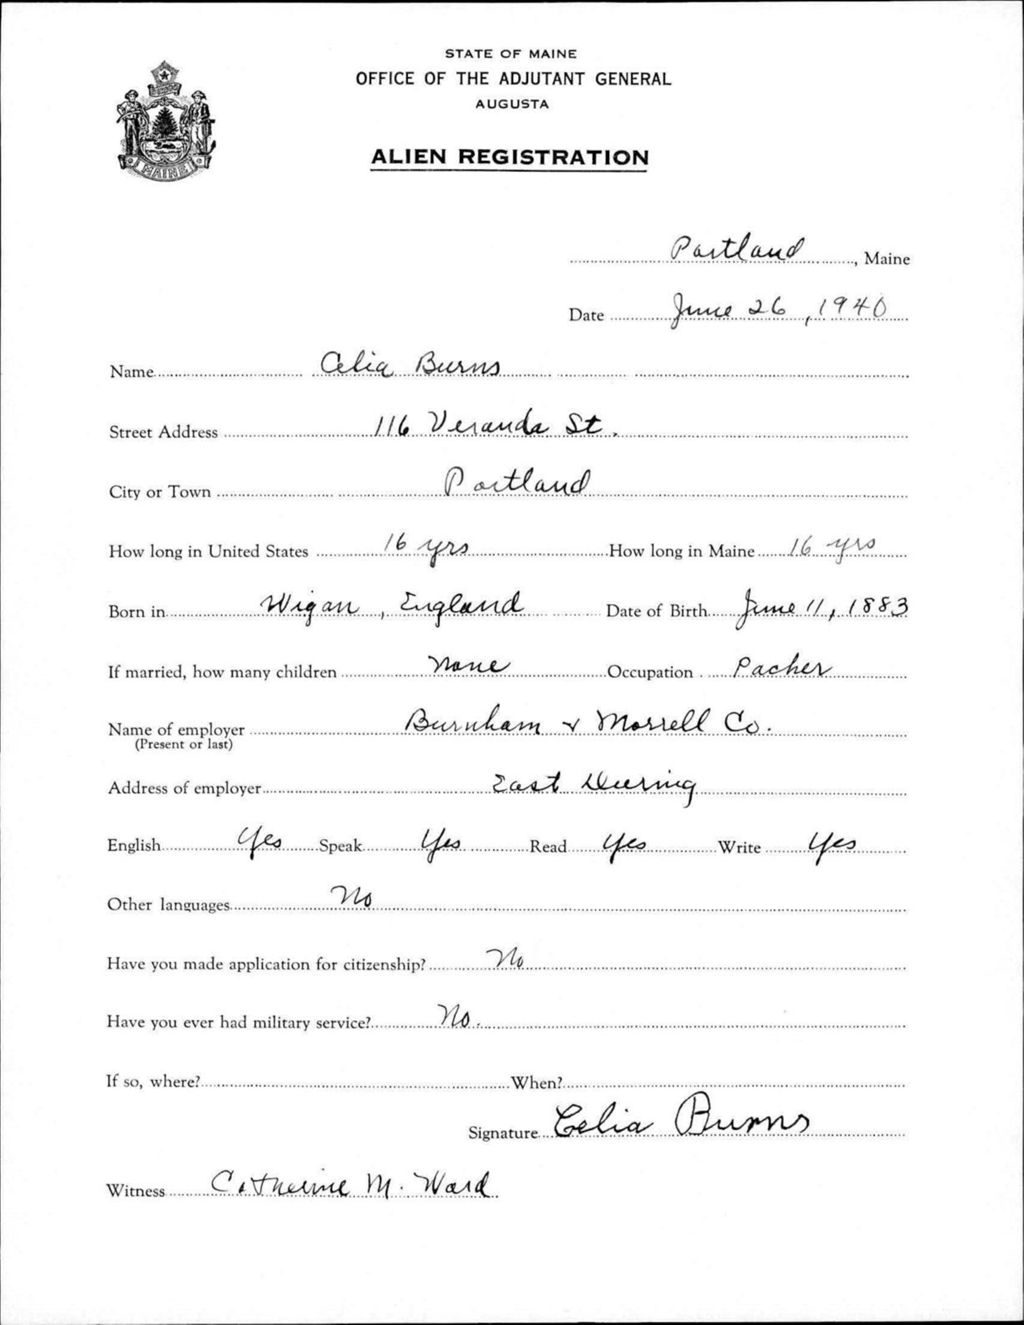 STATE OF MAINE
OFFICE OF THE ADJUTANT GENERAL
AUGUSTA
ALIEN REGISTRATION
MAINE
Portland, Maine
Date June 26, 1940
Name Celia Burns
Street Address 116 Veranda St.
City or Town Portland
How long in United States 16 yrs How long in Maine 16 yrs
Born in Wigan, England Date of Birth June 11, 1883
If married, how many children None Occupation Packer
Name of employer Burnham & Morrell Co.
(Present or last)
Address of employer East Deering
English Yes Speak Yes Read Yes Write Yes
Other languages No
Have you made application for citizenship? No
Have you ever had military service? No.
If so, where? When?
Signature Celia Burns
Witness Catherine M. Ward